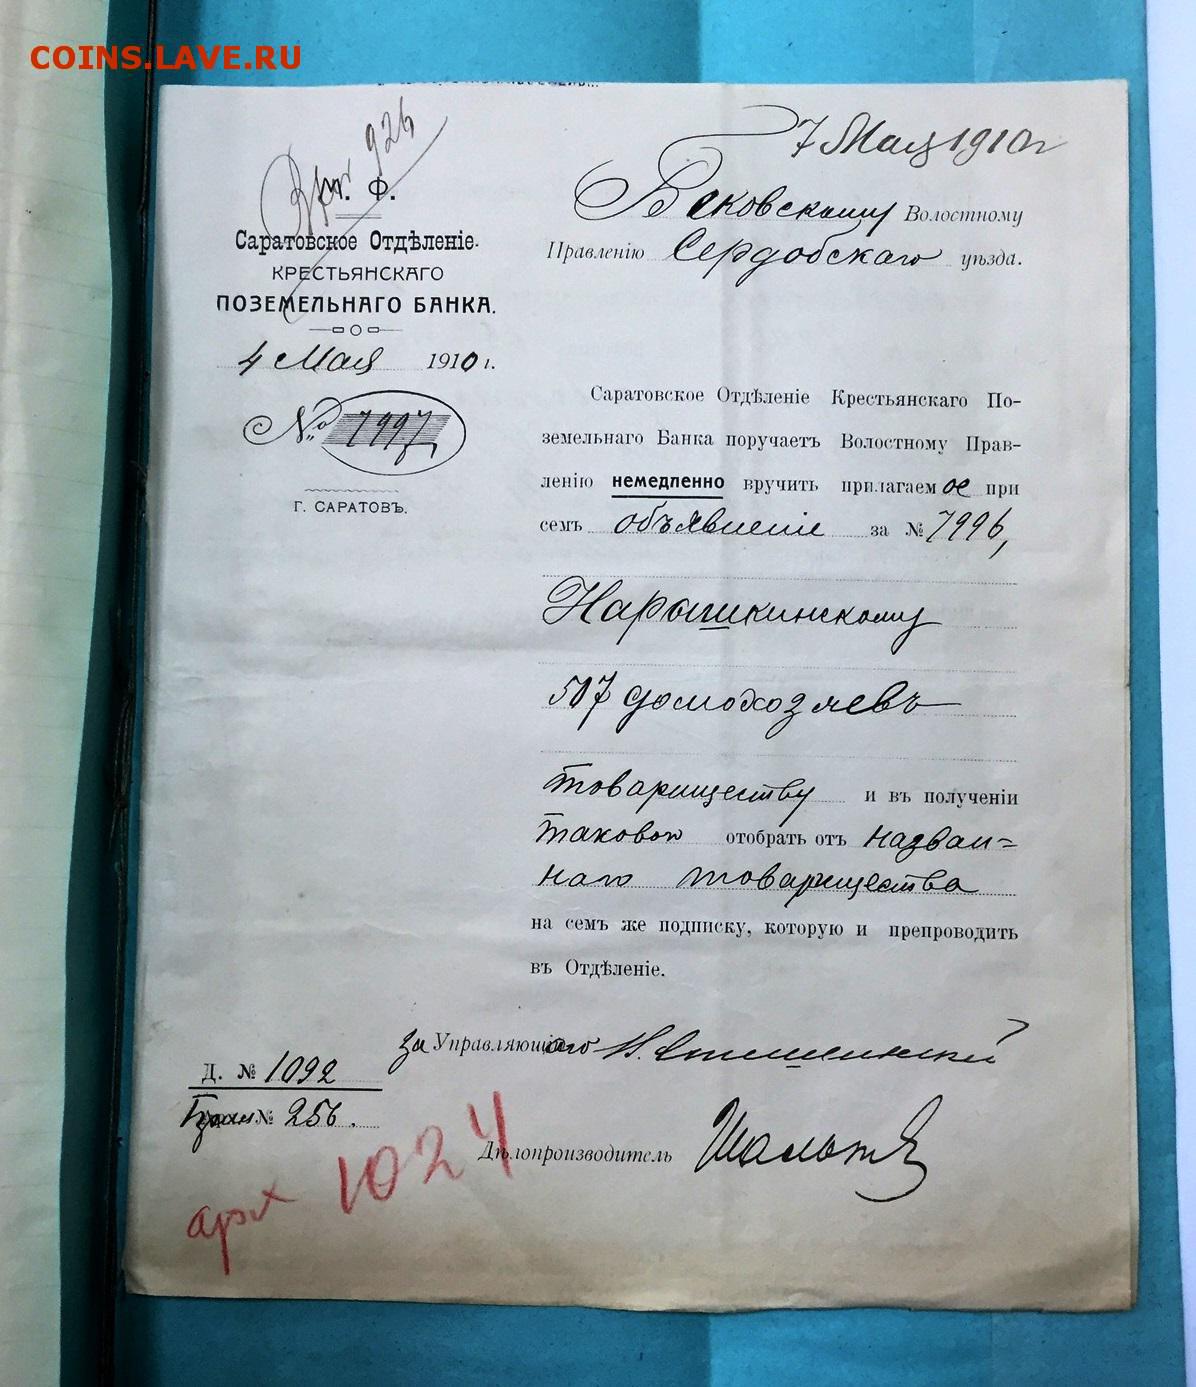 COINS.LAVE.RU
926
7 Мая 1910 г
М. Ф.
Бековскому Волостному
Правлению Сердобского уѣзда.
Саратовское Отдѣленіе
КРЕСТЬЯНСКАГО
ПОЗЕМЕЛЬНАГО БАНКА.
4 Мая 1910 г.
№ 7997
Г. САРАТОВЪ.
Саратовское Отдѣленіе Крестьянскаго По-
земельнаго Банка поручаетъ Волостному Прав-
ленію немедленно вручить прилагаемое при
семъ объявленіе за № 7996,
Нарышкинскому
507 домохозяевъ
товариществу и въ полученіи
таковой отобрать отъ назван=
наго товарищества
на семъ же подписку, которую и препроводить
въ Отдѣленіе.
за Управляющаго Н.
Д. № 1092
№ 256.
Дѣлопроизводитель
арх 1024